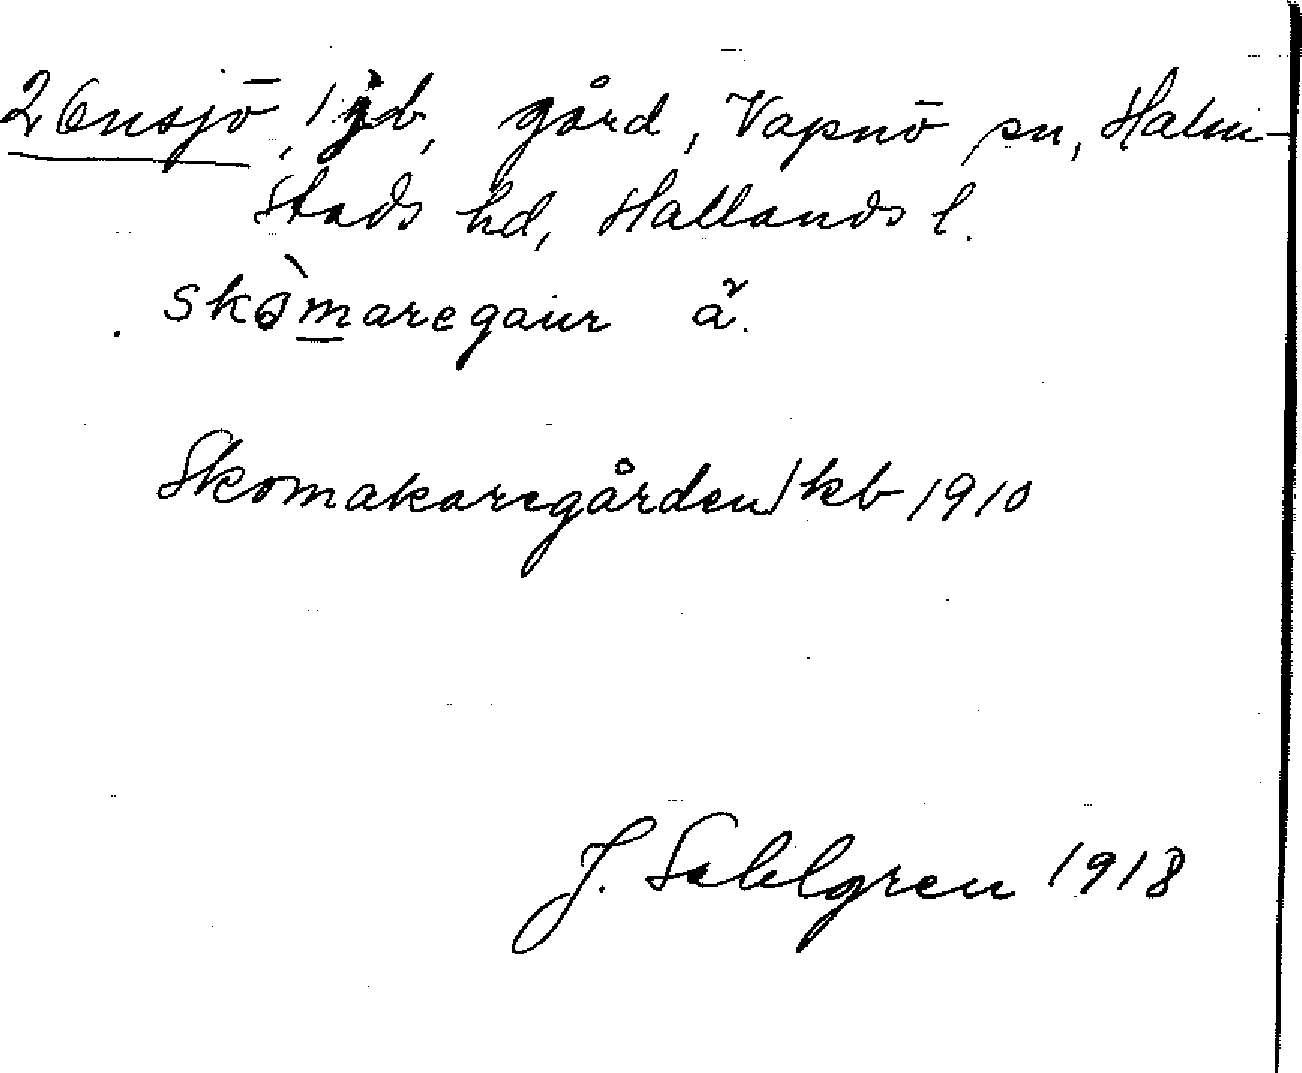 2 Ensjö, 1 jb, gård, Vapnö sn, Halm-
stads hd, Hallands l.
skòmaregaur ǎ.
Skomakaregården / kb 1910
J. Sahlgren 1918